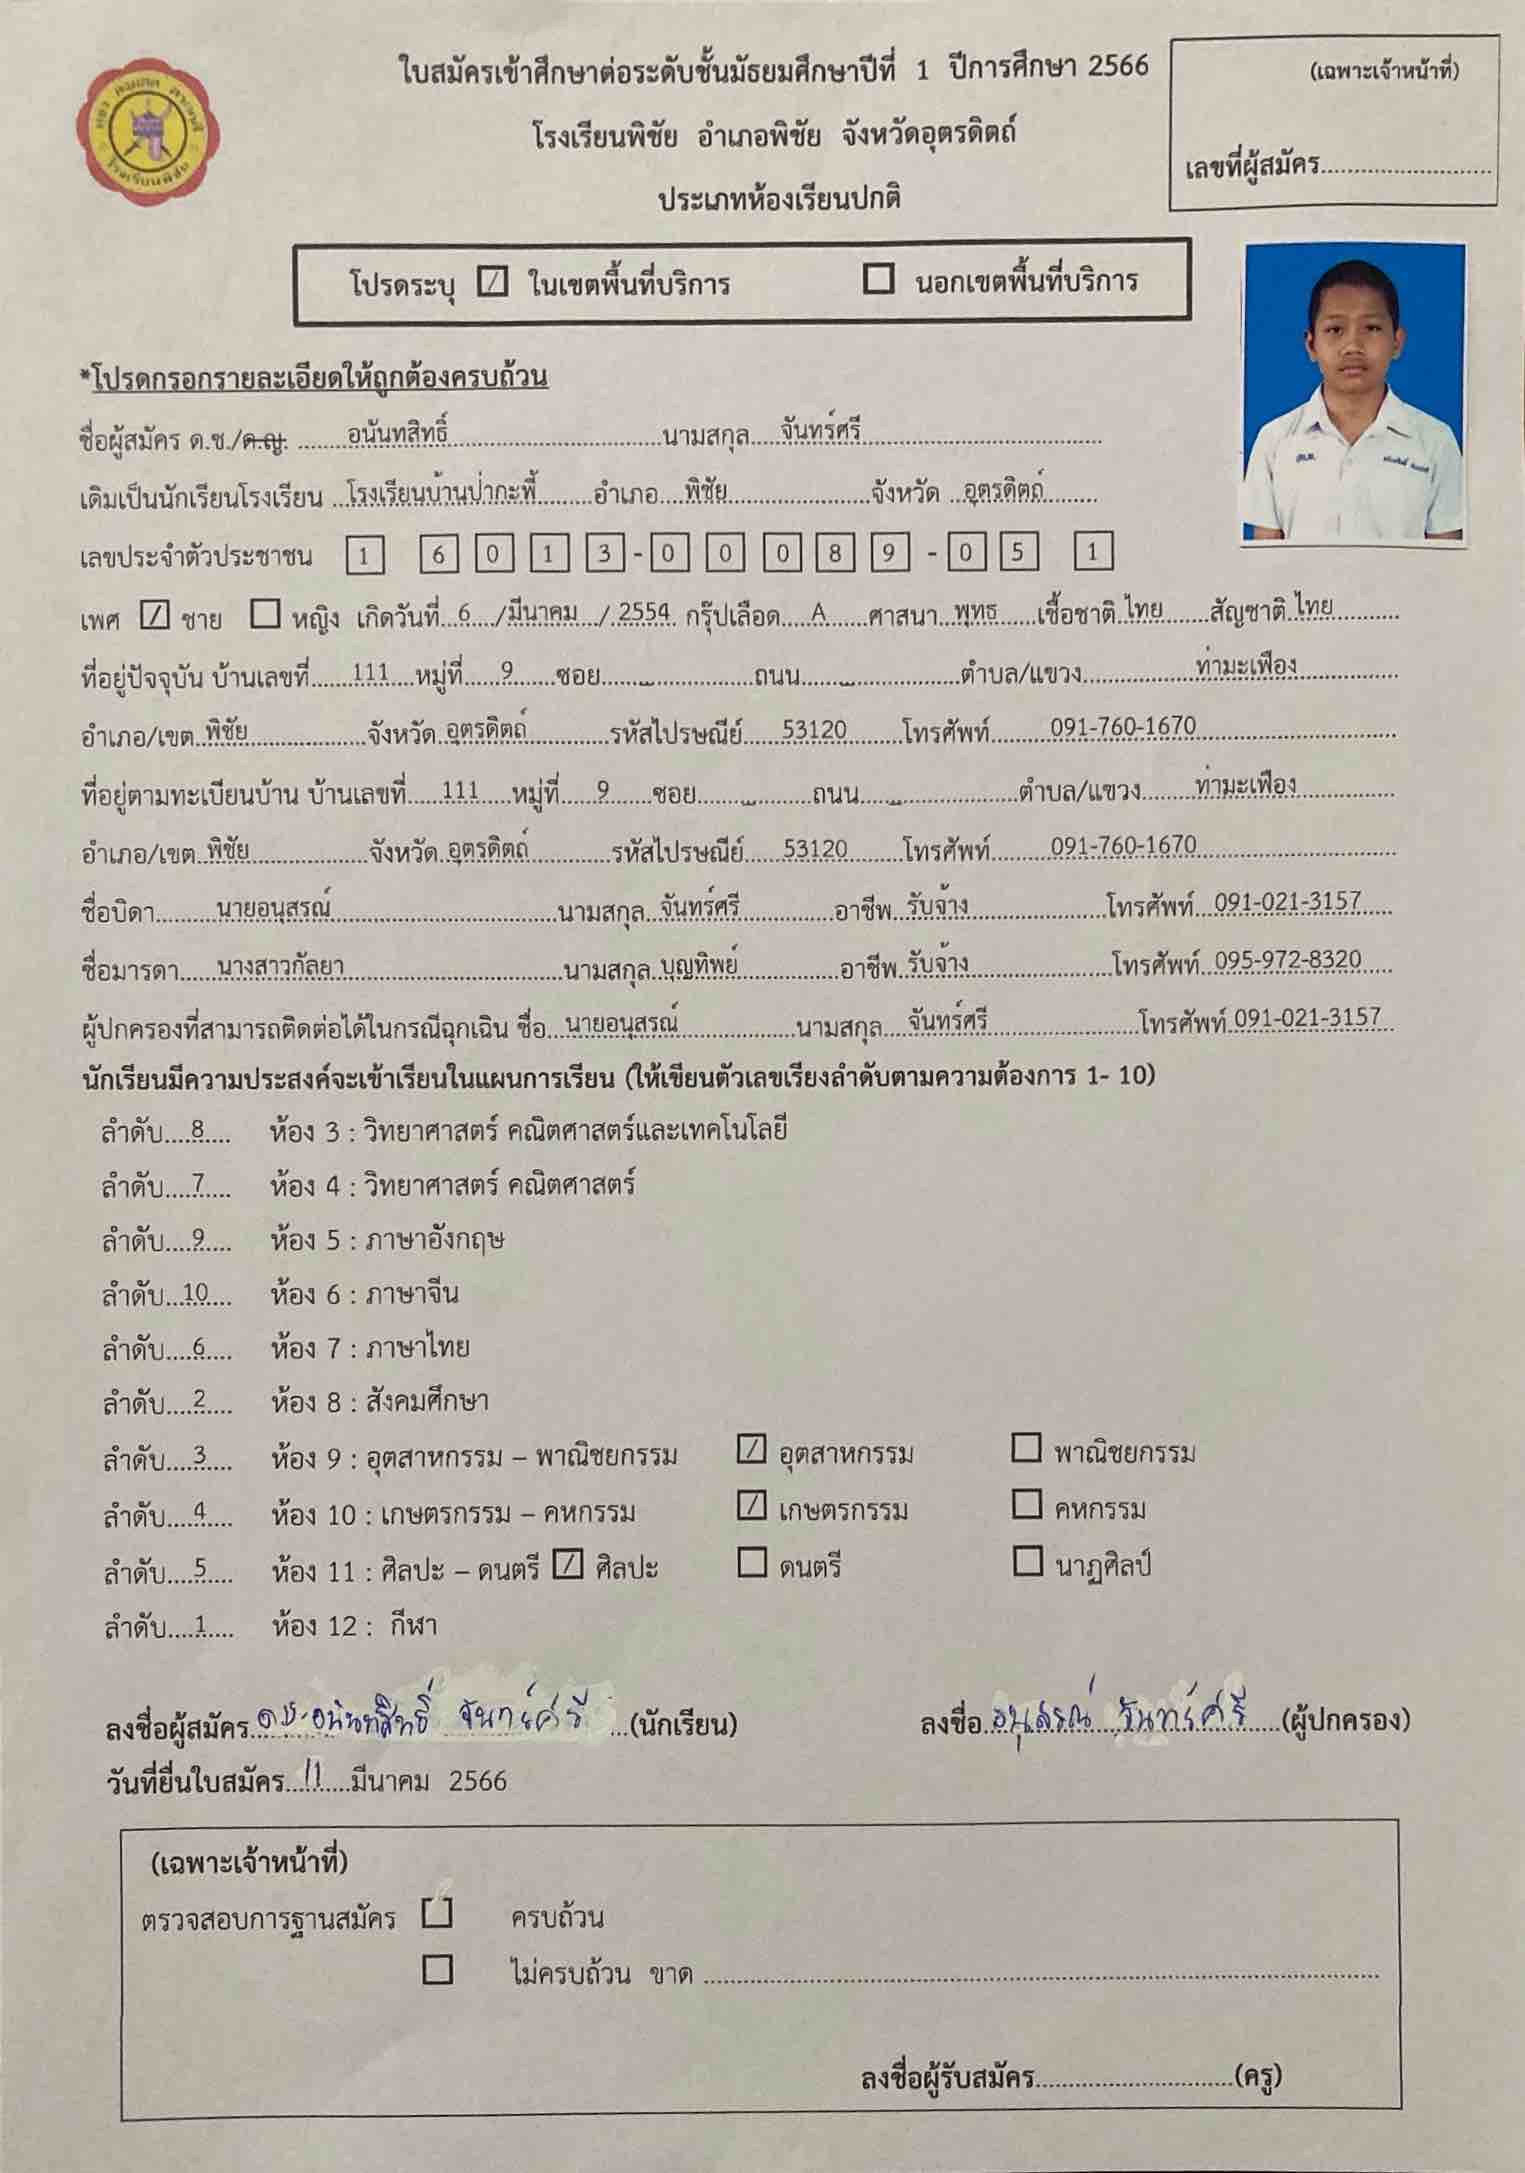 ใบสมัครเข้าศึกษาต่อระดับชั้นมัธยมศึกษาปีที่ 1 ปีการศึกษา 2566
(เฉพาะเจ้าหน้าที่)
โรงเรียนพิชัย อำเภอพิชัย จังหวัดอุตรดิตถ์
เลขที่ผู้สมัคร..........................
ประเภทห้องเรียนปกติ
โรงเรียนพิชัย
โปรดระบุ [/] ในเขตพื้นที่บริการ [ ] นอกเขตพื้นที่บริการ
*โปรดกรอกรายละเอียดให้ถูกต้องครบถ้วน
ชื่อผู้สมัคร ด.ช./ด.ญ. .......อนันทสิทธิ์..............................นามสกุล....จันทร์ศรี....................................
เดิมเป็นนักเรียนโรงเรียน ..โรงเรียนบ้านป่ากะพี้........อำเภอ....พิชัย......................จังหวัด ..อุตรดิตถ์........
เลขประจำตัวประชาชน 1 6 0 1 3 - 0 0 0 8 9 - 0 5 1
เพศ [/] ชาย [ ] หญิง เกิดวันที่..6../มีนาคม../..2554 กรุ๊ปเลือด.....A......ศาสนา..พุทธ.....เชื้อชาติ.ไทย.......สัญชาติ.ไทย..........
ที่อยู่ปัจจุบัน บ้านเลขที่......111....หมู่ที่.....9......ซอย......-...............ถนน......-................ตำบล/แขวง.................ท่ามะเฟือง...............
อำเภอ/เขต.พิชัย..................จังหวัด.อุตรดิตถ์.............รหัสไปรษณีย์......53120........โทรศัพท์.........091-760-1670..............................
ที่อยู่ตามทะเบียนบ้าน บ้านเลขที่.....111.....หมู่ที่.....9......ซอย.......-.........ถนน......-....................ตำบล/แขวง........ท่ามะเฟือง...............
อำเภอ/เขต.พิชัย..................จังหวัด.อุตรดิตถ์.............รหัสไปรษณีย์......53120........โทรศัพท์.........091-760-1670..............................
ชื่อบิดา.........นายอนุสรณ์...................................นามสกุล..จันทร์ศรี..............อาชีพ..รับจ้าง.....................โทรศัพท์...091-021-3157.....
ชื่อมารดา......นางสาวกัลยา..................................นามสกุล.บุญทิพย์...............อาชีพ..รับจ้าง.....................โทรศัพท์...095-972-8320.....
ผู้ปกครองที่สามารถติดต่อได้ในกรณีฉุกเฉิน ชื่อ...นายอนุสรณ์..................นามสกุล....จันทร์ศรี.......................โทรศัพท์.091-021-3157..
นักเรียนมีความประสงค์จะเข้าเรียนในแผนการเรียน (ให้เขียนตัวเลขเรียงลำดับตามความต้องการ 1- 10)
ลำดับ....8.... ห้อง 3 : วิทยาศาสตร์ คณิตศาสตร์และเทคโนโลยี
ลำดับ....7.... ห้อง 4 : วิทยาศาสตร์ คณิตศาสตร์
ลำดับ....9.... ห้อง 5 : ภาษาอังกฤษ
ลำดับ...10.... ห้อง 6 : ภาษาจีน
ลำดับ....6.... ห้อง 7 : ภาษาไทย
ลำดับ....2.... ห้อง 8 : สังคมศึกษา
ลำดับ....3.... ห้อง 9 : อุตสาหกรรม – พาณิชยกรรม [/] อุตสาหกรรม [ ] พาณิชยกรรม
ลำดับ....4.... ห้อง 10 : เกษตรกรรม – คหกรรม [/] เกษตรกรรม [ ] คหกรรม
ลำดับ....5.... ห้อง 11 : ศิลปะ – ดนตรี [/] ศิลปะ [ ] ดนตรี [ ] นาฏศิลป์
ลำดับ....1.... ห้อง 12 : กีฬา
ลงชื่อผู้สมัคร.ด.ช.อนันทสิทธิ์ จันทร์ศรี...(นักเรียน) ลงชื่อ.อนุสรณ์ จันทร์ศรี....(ผู้ปกครอง)
วันที่ยื่นใบสมัคร..11....มีนาคม 2566
(เฉพาะเจ้าหน้าที่)
ตรวจสอบการฐานสมัคร [ ] ครบถ้วน
[ ] ไม่ครบถ้วน ขาด ....................................................................................
ลงชื่อผู้รับสมัคร..............................(ครู)